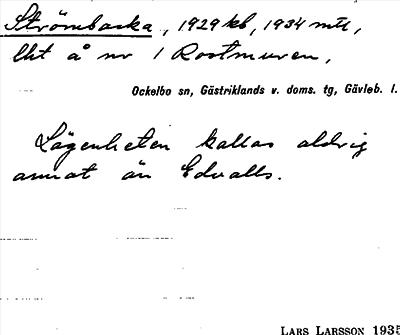 Strömbacka, 1929 kb, 1934 mtl,
lht å nr 1 Rostmuren,
Ockelbo sn, Gästriklands v. doms. tg, Gävleb. l.
Lägenheten kallas aldrig
annat än Edvalls.
LARS LARSSON 1935